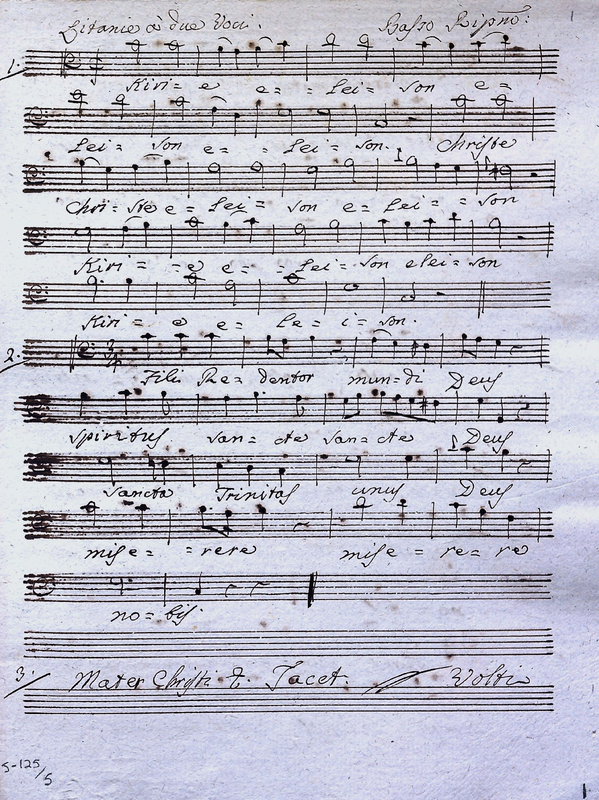 Litanie à due Voci. Basso Ripno: 1
1.
Kiri= e e= = Lei= son e=
Lei= son e= = Lei= son. Christe
Chri= ste e= Lei= son e= Lei= = son
Kiri= =e e= =Lei= son elei= son
Kiri= e e= Le= i= son.
2. 3/4
Fili Re= dentor mun=di Deus
Spiritus san= cte san=cte Deus
Sancta Trinitas unus Deus
mise= =rere mise= re= re
no=bis.
3. Mater Christi &. Tacet. Volti
S-125/5
1